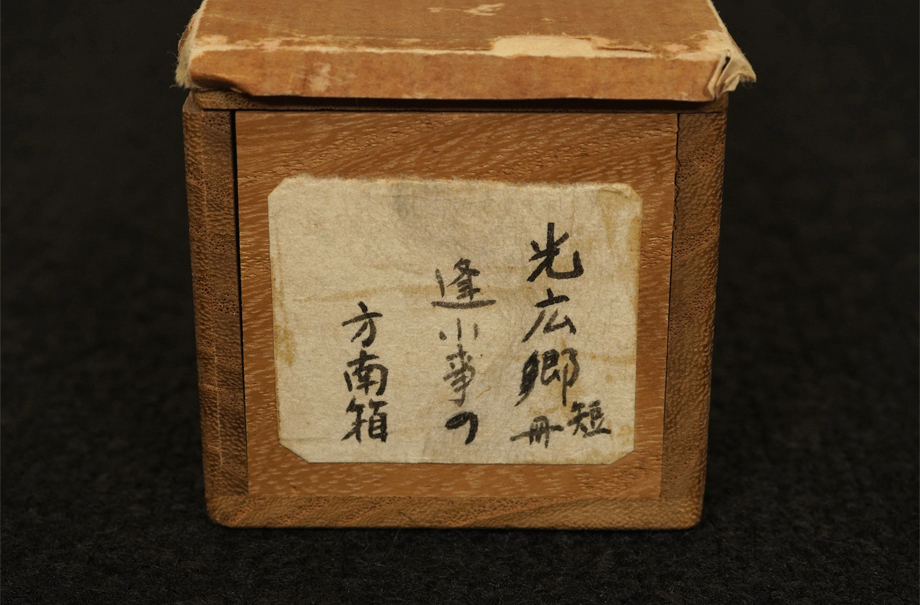 光広郷短冊
逢小事の
方南箱